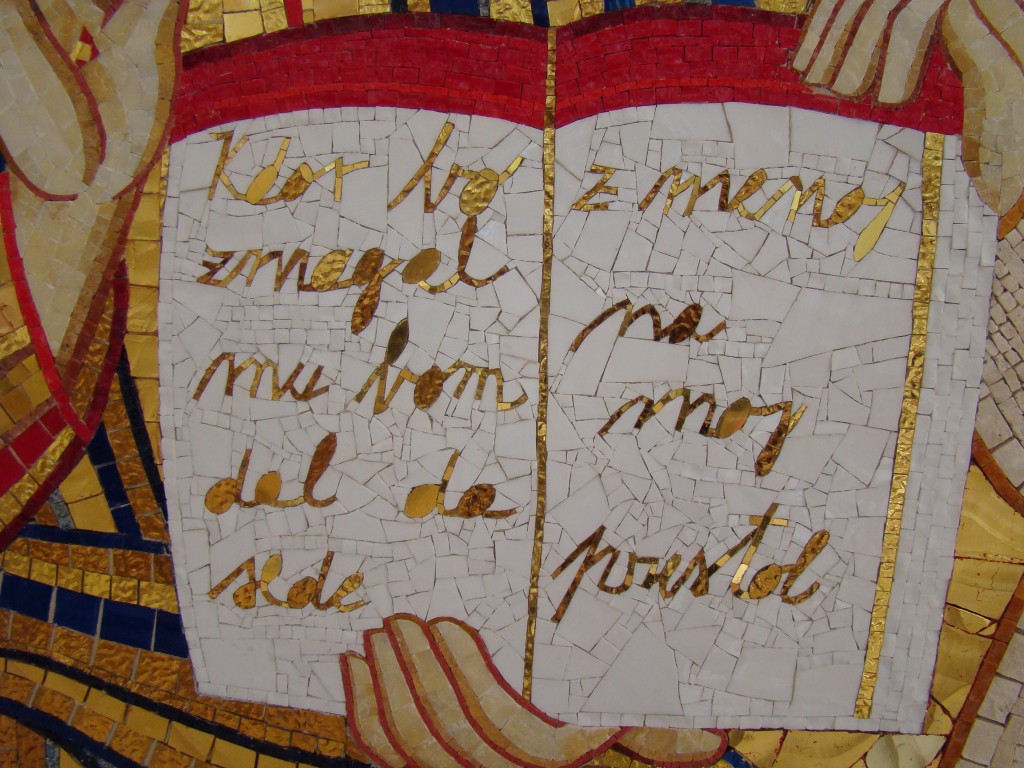 Kdor bo
zmagal
mu bom
dal da
sede
z menoj
na
moj
prestol